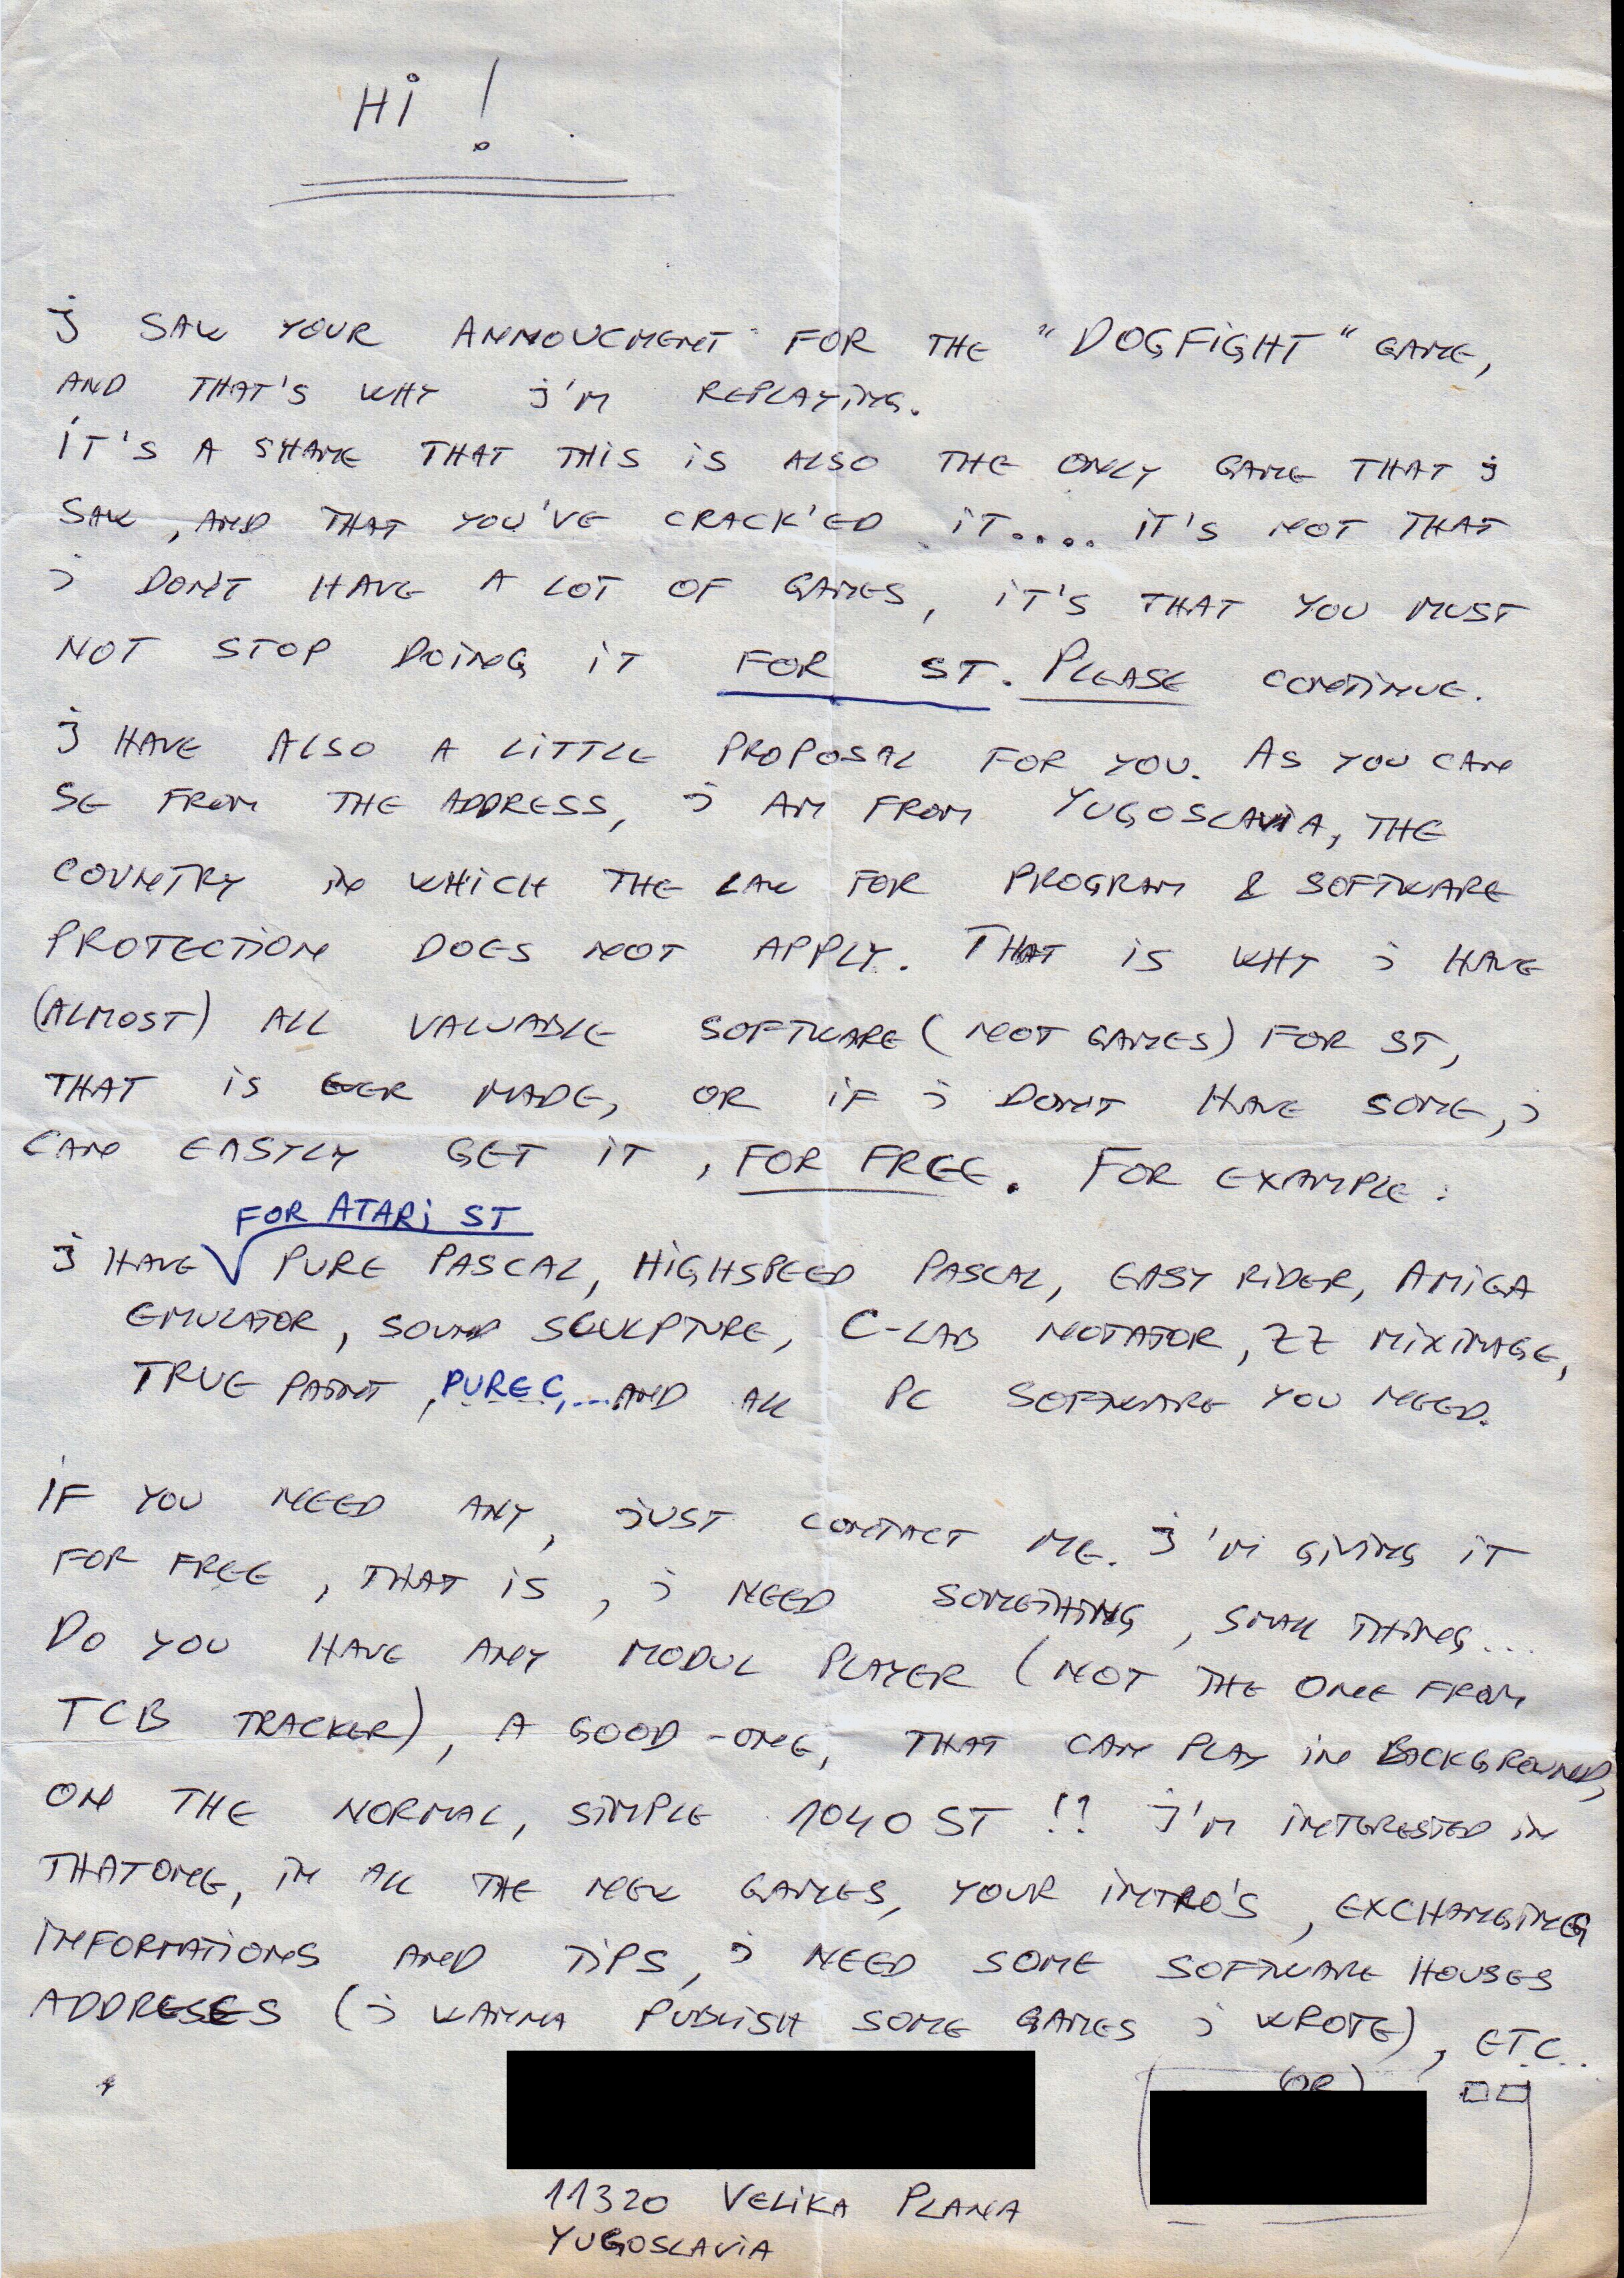 Hi !
j SAW YOUR ANNOUCMENT FOR THE "DOGFiGHT" GAME,
AND THAT'S WHY j'M REPLAYiNG.
iT'S A SHAME THAT THiS iS ALSO THE ONLY GAME THAT j
SAW, AND THAT YOU'VE CRACK'ED iT.... iT'S NOT THAT
j DON'T HAVE A LOT OF GAMES, iT'S THAT YOU MUST
NOT STOP DOiNG iT FOR ST. PLEASE CONTiNUE.
j HAVE ALSO A LiTTLE PROPOSAL FOR YOU. AS YOU CAN
SE FROM THE ADDRESS, j AM FROM YUGOSLAViA, THE
COUNTRY iN WHiCH THE LAW FOR PROGRAM & SOFTWARE
PROTECTiON DOES NOT APPLY. THAT iS WHY j HAVE
(ALMOST) ALL VALUABLE SOFTWARE (NOT GAMES) FOR ST,
THAT iS EVER MADE, OR iF j DON'T HAVE SOME, j
CAN EASTLY GET iT, FOR FREE. FOR EXAMPLE:
FOR ATARi ST
j HAVE PURE PASCAL, HiGHSPEED PASCAL, EASY RiDER, AMiGA
EMULATOR, SOUND SCULPTURE, C-LAB NOTATOR, ZZ MiXiMAGE,
TRUE PAiNT, PURE C,... AND ALL PC SOFTWARE YOU NEED.
iF YOU NEED ANY, jUST CONTACT ME. j'M GiViNG iT
FOR FREE, THAT iS, j NEED SOMETHiNG, SMALL THiNG...
DO YOU HAVE ANY MODUL PLAYER (NOT THE ONE FROM
TCB TRACKER), A GOOD-ONE, THAT CAN PLAY iN BACKGROUND,
ON THE NORMAL, SiMPLE 1040 ST !? j'M iNTERESTED iN
THATONE, iN ALL THE NEW GAMES, YOUR iNTRO'S, EXCHANGiNG
iNFORMATiONS AND TiPS, j NEED SOME SOFTWARE HOUSES
ADDRESES (j WANNA PUBLiSH SOME GAMES j WROTE), ETC..
(OR)
11320 VELiKA PLANA
YUGOSLAViA